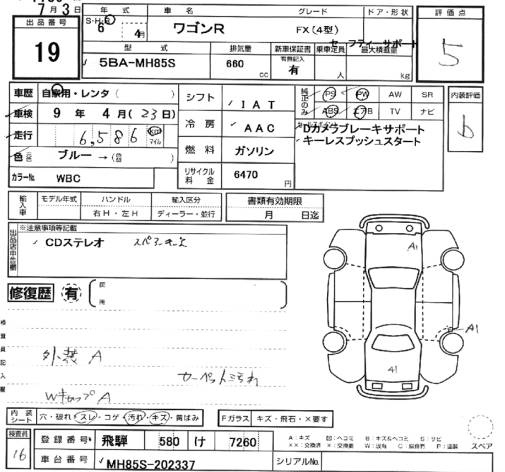 7月3日
出品番号
19
年 式 車 名 グレード ドア・形状 評価点
S・H・R
6 年 4月 ワゴンR FX(4型)
5
型 式 排気量 新車保証書 乗車定員 最大積載量
セーフティーサポート
5BA-MH85S 660 cc 有無記入 有 人 kg
車歴 自家用・レンタ( )
車検 9 年 4 月 ( 23 日)
走行 6,586 Km マイル
色 ブルー →(
カラーNo. WBC
シフト 1AT
冷房 AAC
燃料 ガソリン
リサイクル料金 6470 円
純正のみ PS PW AW SR
ABS エアB TV ナビ
セールスポイント
Dカメラブレーキサポート
キーレスプッシュスタート
内装評価
b
輸入車 モデル年式 ハンドル 輸入区分
年 右H・左H ディーラー・並行
書類有効期限
月 日迄
出品店申告欄
※注意事項等記載
CDステレオ
修復歴 有
検査員記入欄
外装 A
カーペット汚れ
Wキャップ A
A1
A1
41
内装シート 穴・破れ・スレ・コゲ・汚れ・キズ・黄ばみ
Fガラス キズ・飛石・×要す
検査員
16
登録番号 飛騨 580 け 7260
車台番号 MH85S-202337
シリアルNo.
A:キズ
スペア